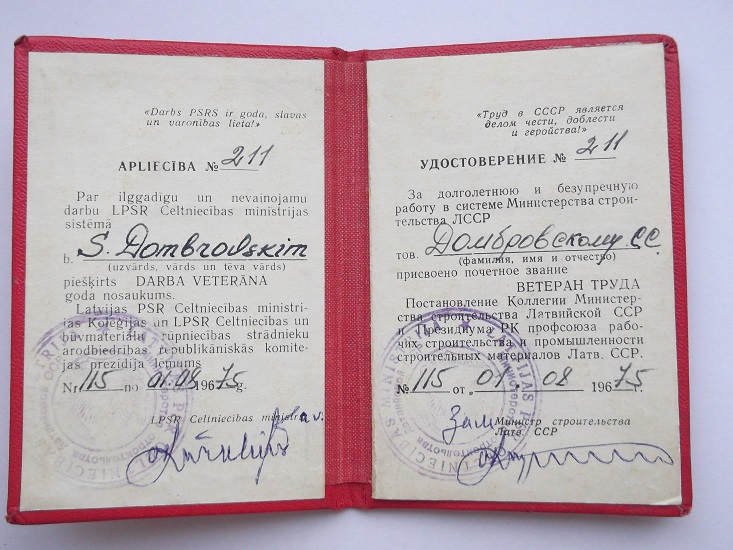 «Darbs PSRS ir goda, slavas
un varonības lieta!»
APLIECĪBA № 211
Par ilggadīgu un nevainojamu
darbu LPSR Celtniecības ministrijas
sistēmā
b. S. Dombrovskim
(uzvārds, vārds un tēva vārds)
piešķirts DARBA VETERĀNA
goda nosaukums.
Latvijas PSR Celtniecības ministri-
jas Kolēģijas un LPSR Celtniecības un
būvmateriālu rūpniecības strādnieku
arodbiedrības republikāniskās komite-
jas prezidija lēmums
Nr 115 no 01.08 1975 g.
LPSR Celtniecības ministra
«Труд в СССР является
делом чести, доблести
и геройства!»
УДОСТОВЕРЕНИЕ № 211
За долголетнюю и безупречную
работу в системе Министерства строи-
тельства ЛССР
тов. Домбровскому СС
(фамилия, имя и отчество)
присвоено почетное звание
ВЕТЕРАН ТРУДА
Постановление Коллегии Министер-
ства строительства Латвийской ССР
и Президиума РК профсоюза рабо-
чих строительства и промышленности
строительных материалов Латв. ССР.
№ 115 от „01" 08 19675 г.
Зам.
Министр строительства
Латв. ССР